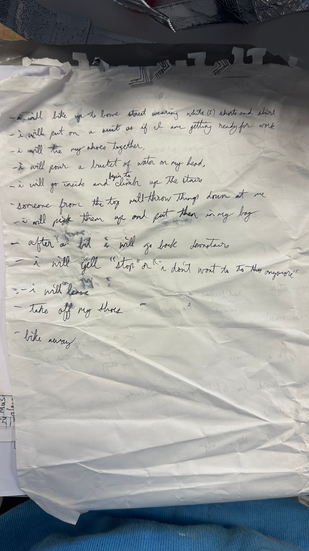 - i will bike up to bowe street wearing white (t) shorts and shirt
- i will put on a suit as if I am getting ready for work
- i will tie my shoes together,
- i will pour a bucket of water on my head,
- i will go inside and begin to climb up the stairs
- someone from the top will throw things down at me
- i will pick them up and put them in my bag
- after a bit i will go back downstairs
- i will yell "stop" or "i don't want to do this anymore"
- i will leave
- take off my shoes
- bike away